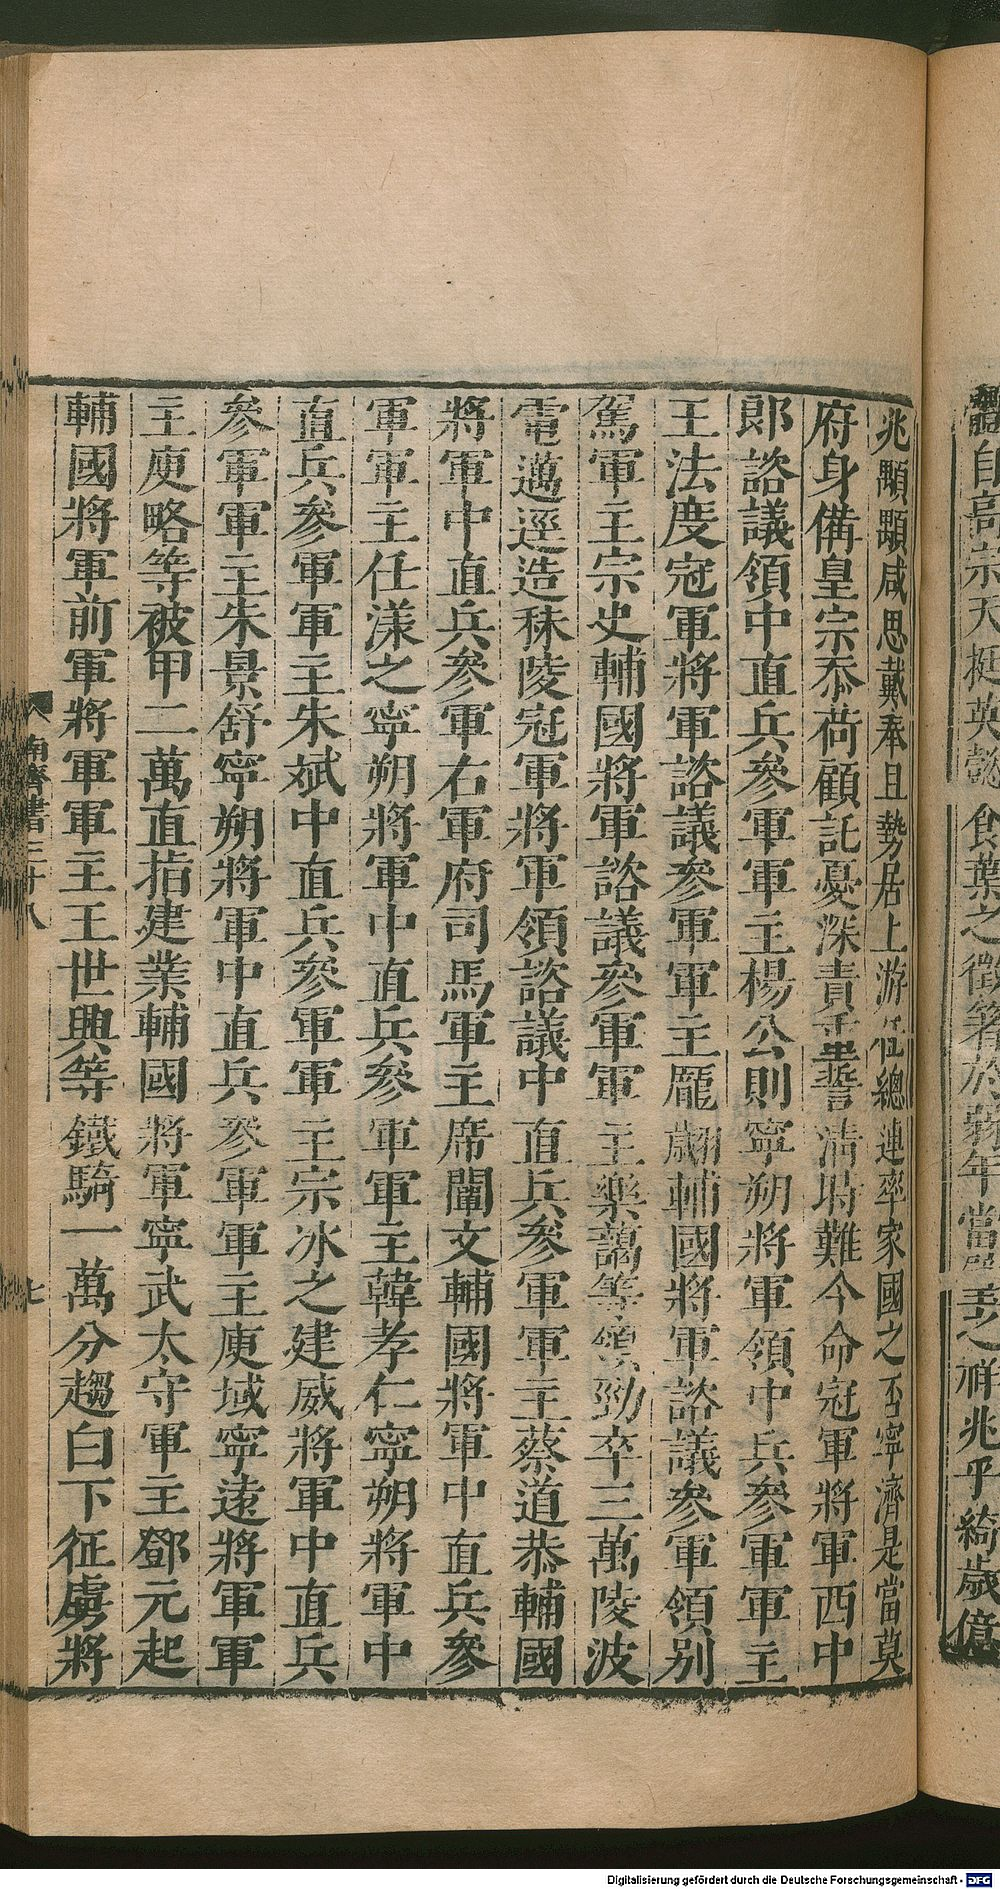 體自高宗天挺英懿食葉之徵著於弱年當璧之祥兆乎綺歲億
兆顒顒咸思戴奉且勢居上游任總連率家國之否寧濟是當莫
府身備皇宗忝荷顧託憂深責重誓清時難今命冠軍將軍西中
郎諮議領中直兵參軍軍主楊公則寧朔將軍領中兵參軍軍主
王法度冠軍將軍諮議參軍軍主龐翽輔國將軍諮議參軍領別
駕軍主宗史輔國將軍諮議參軍軍主樂藹等領勁卒三萬陵波
電邁逕造秣陵冠軍將軍領諮議中直兵參軍軍主蔡道恭輔國
將軍中直兵參軍右軍府司馬軍主席闡文輔國將軍中直兵參
軍軍主任漾之寧朔將軍中直兵參軍軍主韓孝仁寧朔將軍中
直兵參軍軍主朱斌中直兵參軍軍主宗冰之建威將軍中直兵
參軍軍主朱景舒寧朔將軍中直兵參軍軍主庾域寧遠將軍軍
主庾略等被甲二萬直指建業輔國將軍寧武太守軍主鄧元起
輔國將軍前軍將軍軍主王世興等鐵騎一萬分趨白下征虜將
南齊書三十八
七
Digitalisierung gefördert durch die Deutsche Forschungsgemeinschaft - DFG